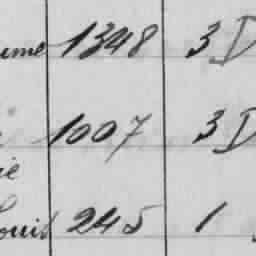 ume 1348 3 D
1007 3 D
ie
Louis 245 1